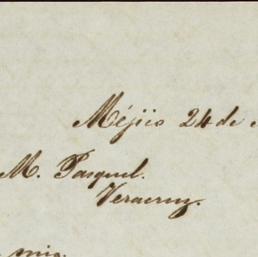 Méjico 24 de
M. Pasquel.
Veracruz.
mio.